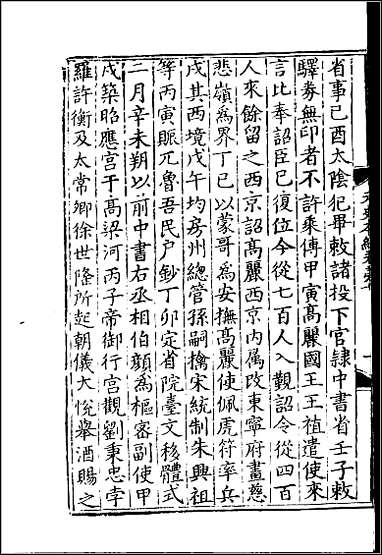 省事己酉太陰犯畢敕諸投下官隸中書省壬子敕
驛券無印者不許乘傳甲寅高麗國王王禃遣使來
言比奉詔臣已復位今從七百人入覲詔令從四百
人來餘留之西京詔高麗西京內属改東寧府畫慈
悲嶺為界丁巳以蒙哥為安撫高麗使佩虎符率兵
戍其西境戊午均房州總管孫嗣擒宋統制朱興祖
等丙寅賑兀魯吾民户鈔丁卯定省院臺文移體式
二月辛未朔以前中書右丞相伯顔為樞密副使甲
戌築昭應宫于高梁河丙子帝御行宫觀劉秉忠孛
羅許衡及太常卿徐世隆所起朝儀大悅舉酒賜之